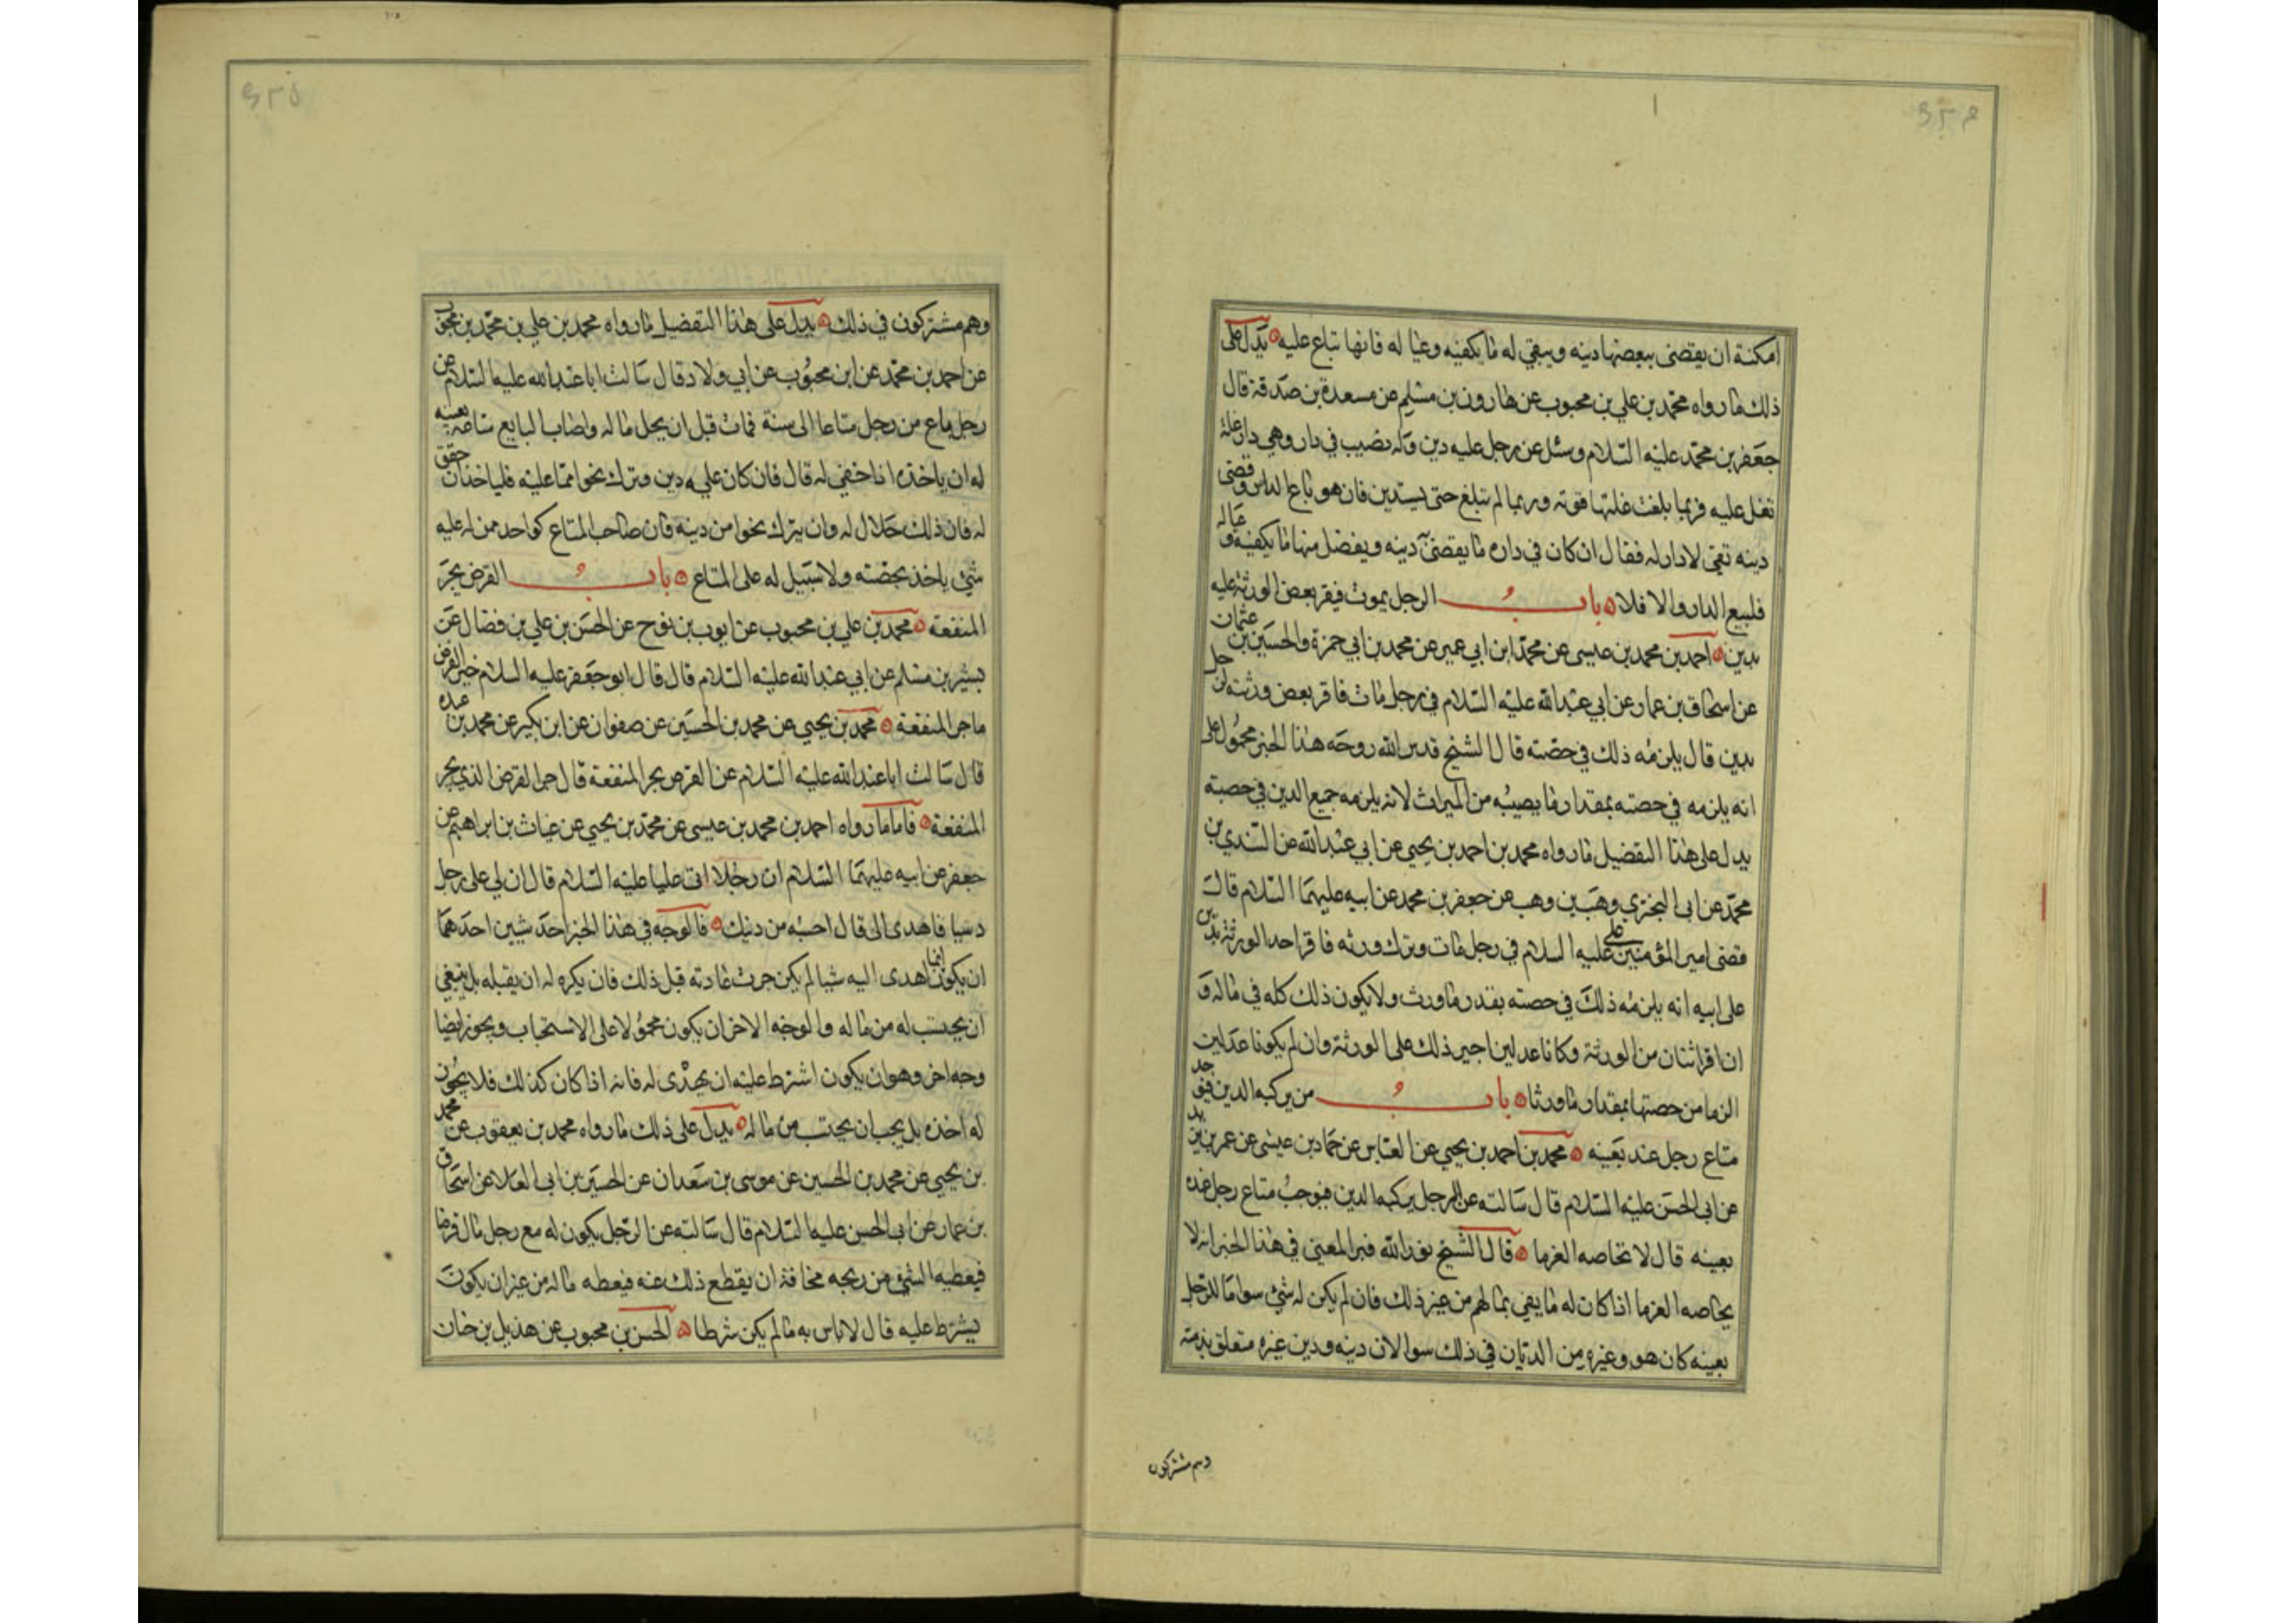 امكنة ان يقضى ببعضها دينه ويبقي له ما يكفيه وعيا له فانها تباع عليه يدل على
ذلك ما رواه محمد بن علي بن محبوب عن هارون بن مسلم عن مسعدة بن صدقة قال
جعفر بن محمد عليه السلام وسئل عن رجل عليه دين وله نصيب في دار وهي دار غلة
تغل عليه فربما بلغت غلتها قوته وربما لم تبلغ حتى يستدين فان هو باع الدار وقضى
دينه بقي لا دار له فقال ان كان في داره ما يقضي دينه ويفضل منها ما يكفيه و عياله
فليبيع الدار والا فلا باب الرجل يموت فيقر بعض الورثة عليه
بدين احمد بن محمد بن عيسى عن محمد ابن ابي عمير عن محمد بن ابي حمزة والحسين بن عثمان
عن اسحاق بن عمار عن ابي عبد الله عليه السلام في رجل مات فاقر بعض ورثته لرجل
بدين قال يلزمه ذلك في حصته قال الشيخ قدس الله روحه هذا الخبر محمول على
انه يلزمه في حصته بمقدار ما يصيبه من الميراث لانه يلزمه جميع الدين في حصته
يدل على هذا التفضيل ما رواه محمد بن احمد بن يحيي عن ابي عبد الله عن السندي بن
محمد عن ابي البختري وهب بن وهب عن جعفر بن محمد عن ابيه عليهما السلام قال
قضى امير المؤمنين علي عليه السلام في رجل مات وترك ورثه فاقر احد الورثة بدين
على ابيه انه يلزمه ذلك في حصته بقدر ما ورث ولا يكون ذلك كله في ماله و
ان اقر اثنان من الورثة وكانا عدلين اجيز ذلك على الورثة وان لم يكونا عدلين
الزما من حصتها بمقدار ما ورثا باب من يركبه الدين فيوجد
متاع رجل عنده بعينه محمد بن احمد بن يحيي عن العباس عن حماد بن عيسى عن عمر بن يزيد
عن ابي الحسن عليه السلام قال سالته عن الرجل يركبه الدين فيوجب متاع رجل عنده
بعينه قال لا تحاصه الغرما قال الشيخ نور الله قبره المعني في هذا الخبر انه لا
يحاصه الغرما اذا كان له ما يفي بما لهم من غير ذلك فان لم يكن له شئ سوا متاع الرجل
بعينه كان هو وغيره من الديان في ذلك سوا لان دينه ودين غيره متعلق بذمته
وهم مشتركون
وهم مشتركون في ذلك يدل على هذا التفضيل ما رواه محمد بن علي بن محمد بن محبوب
عن احمد بن محمد عن ابن محبوب عن ابي ولاد قال سالت ابا عبد الله عليه السلام عن
رجل باع من رجل متاعا الى سنة فمات قبل ان يحل ماله واصاب البايع متاعه بعينه
له ان ياخذه اذا خفي له قال فان كان عليه دين وترك نحوا مما عليه فلياخذ ان حقق
له فان ذلك حلال له وان يترك نحوا من دينه فان صاحب المتاع كواحد ممن له عليه
شئ ياخذ بحصته ولا سبيل له على المتاع باب القرض يجر
المنفعة محمد بن علي بن محبوب عن ايوب بن نوح عن الحسن بن علي بن فضال عن
بشير بن مسلم عن ابي عبد الله عليه السلام قال قال ابو جعفر عليه السلام خير القرض
ما جر المنفعة محمد بن يحيي عن محمد بن الحسين عن صفوان عن ابن بكير عن محمد بن عبده
قال سالت ابا عبد الله عليه السلام عن القرض يجر المنفعة قال خير القرض الذي يجر
المنفعة فاما ما رواه احمد بن محمد بن عيسى عن محمد بن يحيي عن غياث بن ابراهيم عن
جعفر عن ابيه عليهما السلام ان رجلا اتى عليا عليه السلام قال ان لي على رجل
دينا فاهدى الى قال احسبه من دينك فالوجه في هذا الخبر احد شيين احدهما
ان يكون انما اهدى اليه شيا لم يكن جرت عادته قبل ذلك فان يكره له ان يقبله بل ينبغي
ان يحتسب له من ماله والوجه الاخر ان يكون محمولا على الاستحباب ويجوز ايضا
وجه اخر وهو ان يكون اشترط عليه ان يهدى له فانه اذا كان كذلك فلا يجوز
له اخذه بل يجب ان يحتسب من ماله يدل على ذلك ما رواه محمد بن يعقوب عن محمد
بن يحيي عن محمد بن الحسين عن موسى بن سعدان عن الحسين بن ابي العلا عن اسحاق
بن عمار عن ابي الحسن عليه السلام قال سالته عن الرجل يكون له مع رجل مال قرضا
فيعطيه الشئ من ربحه مخافة ان يقطع ذلك عنه فيعطه ماله من غير ان يكون
يشترط عليه قال لا باس به ما لم يكن شرطا الحسن بن محبوب عن هذيل بن حنان